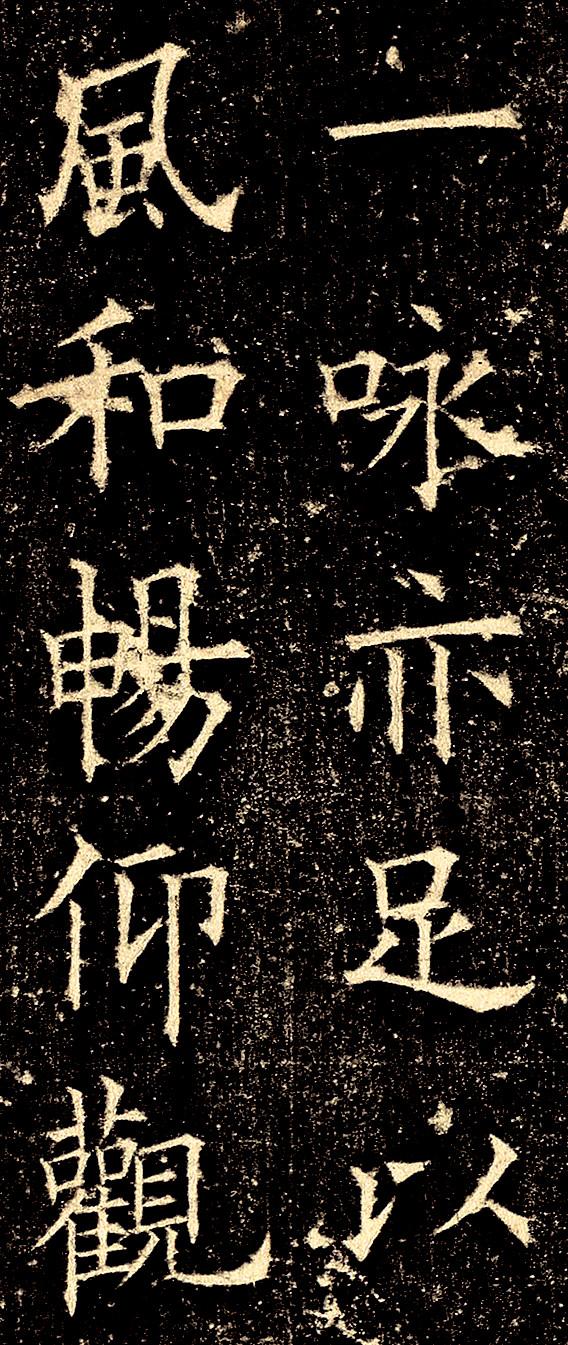 一咏亦足以
風和暢仰觀